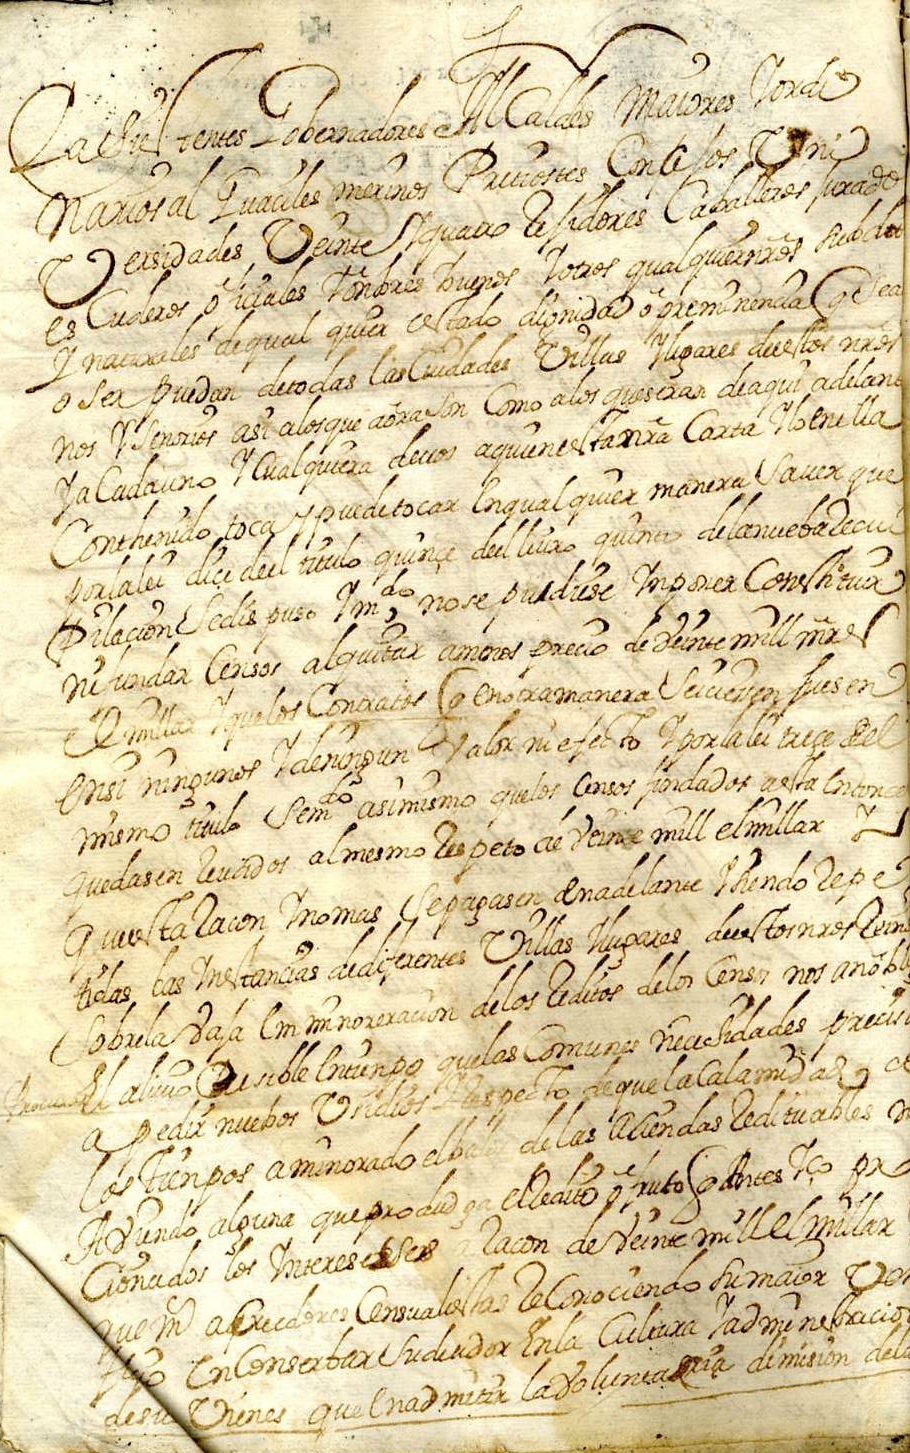 Gobernadores Alcaldes Maiores Y ordi
narios al Guaciles merinos Conçejos Uni
Versidades Veinte Y quatro Rejidores Caballeros jurados
es Cuderos ofiçiales Y onbres buenos Y otros qualquier nrõs subdit
Y naturales de qual quier estado dignidad o preminencia q̃ Sea
o Ser puedan de todas las Ciudades Villas Y lugares de estos nrõs
nos Y Senorios asi alos que aora son Como a los que seran de aqui adelant
Y a Cada uno Y Cualquiera de vos a quien esta nrã Carta Y lo en ella
Conthenido toca Y puede tocar En qual quier manera Saver que
por la lei diçe del titulo quinçe del livro quinto de la nueba Recu
pilacion Se dis puso Y md.º no se pudiese Ynponer Constituir
ni fundar Censos al quitar a menos precio de Veinte mill mrs
El millar Y que los Contratos q̃ en otra manera Se iciesen fuesen
En si ningunos Y de ningun Valor ni efecto Y por la lei treçe del
mismo titulo Se mdo asimismo que los Censos fundados asta Entonces
quedasen reducidos al mesmo Respeto de Veinte mill el millar Y
q̃ a esta Raçon Y no mas Se pagasen En adelante Y siendo Repe
tidas las Ynstancias de diferentes Villas Y lugares de estos nrõs Rein
Sobre la Vaja Em minoreracion de los Reditos de los Censos
El alivio Posible En tienpo que las Comunes neçesidades preçis
a pedir nuebos Respecto de que la Calamidad
los Tienpos a minorado el de las açiendas Redituables n
Aviendo alguna que produzga el Redito o fruto
Cionados los Yntereses a Raçon de Veinte mill el millar
que acreedores Censualistas Reconociendo su maior
En Conserbar su deudor En la Cultura Y administracion
de sus Vienes que En admitir la Voluntaria dimision de la